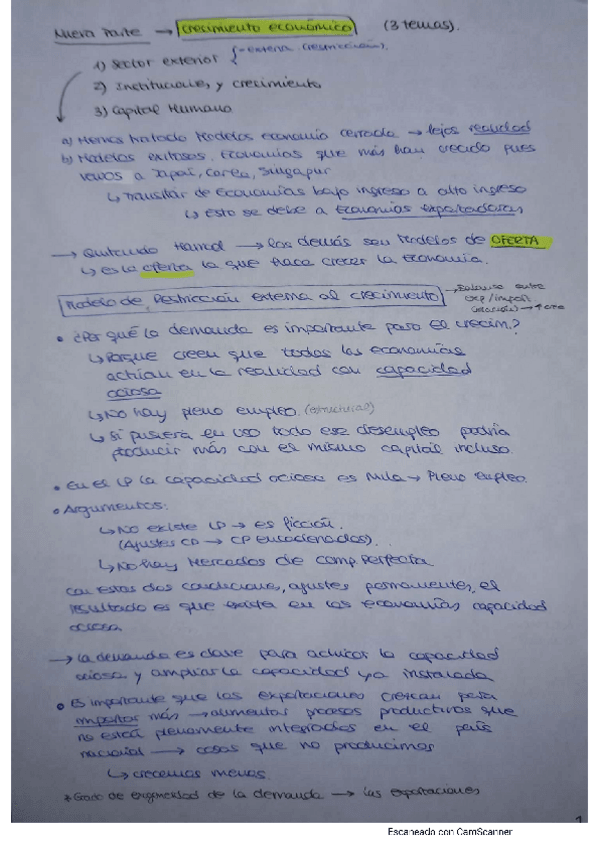 Nueva Parte → Crecimiento económico (3 temas).
1) Sector exterior {- externa (restricción).
2) Instituciones y crecimiento
3) Capital Humano
a) Hemos tratado Modelos economía cerrada → lejos realidad
b) Modelos exitosos. Economías que más han crecido pues
vemos a Japón, Corea, Singapur
↳ Transitar de economías bajo ingreso a alto ingreso
↳ esto se debe a economías exportadoras
→ Quitando → los demás son Modelos de OFERTA
↳ es la oferta la que hace crecer la economía.
Modelo de Restricción externa al crecimiento → Balance entre
exp/import
→ ↑
• ¿Por qué la demanda es importante para el crecim.?
↳ Porque creen que todas las economías
actúan en la realidad con capacidad
ociosa
↳ No hay pleno empleo.
↳ Si pusiera en uso todo ese desempleo podría
producir más con el mismo capital incluso.
• En el LP la capacidad ociosa es Nula → Pleno Empleo.
• Argumentos:
↳ No existe LP → es ficción.
(Ajustes CP → CP encadenados).
↳ No hay Mercados de comp. Perfecta
Con estas dos condiciones, ajustes permanentes, el
resultado es que exista en las economías capacidad
ociosa
→ la demanda es clave para achicar la capacidad
ociosa y ampliar la capacidad ya instalada
• Es importante que las exportaciones crezcan para
importar más → alimentar procesos productivos que
no están plenamente integrados en el país
nacional → cosas que no producimos
↳ crecemos menos.
* Grado de exogeneidad de la demanda → las exportaciones
1
Escaneado con CamScanner